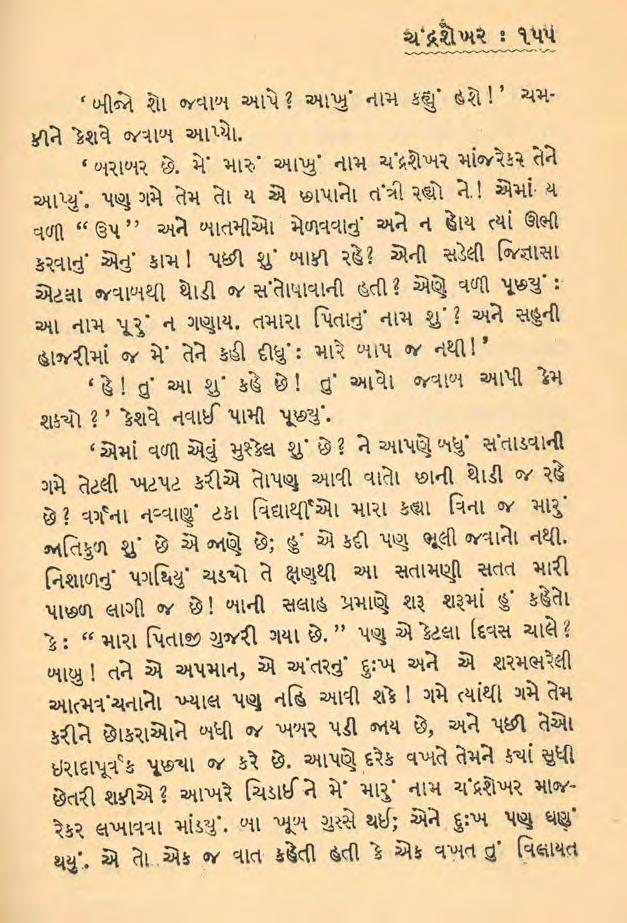 ચંદ્રશેખર : ૧૫૫
‘બીજો શો જવાબ આપે? આખું નામ કહ્યું હશે!’ ચમ-
કીને કેશવે જવાબ આપ્યો.
‘બરાબર છે. મેં મારું આખું નામ ચંદ્રશેખર માંજરેકર તેને
આપ્યું. પણ ગમે તેમ તો ય એ છાપાનો તંત્રી રહ્યો ને! એમાં ય
વળી “ઉપ” અને બાતમીઓ મેળવવાનું અને ન હોય ત્યાં ઊભી
કરવાનું એનું કામ! પછી શું બાકી રહે? એની સડેલી જિજ્ઞાસા
એટલા જવાબથી થોડી જ સંતોષાવાની હતી? એણે વળી પૂછ્યું :
આ નામ પૂરું ન ગણાય. તમારા પિતાનું નામ શું? અને સહુની
હાજરીમાં જ મેં તેને કહી દીધું : મારે બાપ જ નથી!’
‘હેં! તું આ શું કહે છે! તું આવો જવાબ આપી કેમ
શક્યો?’ કેશવે નવાઈ પામી પૂછ્યું.
‘એમાં વળી એવું મુશ્કેલ શું છે? ને આપણે બધું સંતાડવાની
ગમે તેટલી ખટપટ કરીએ તોપણ આવી વાતો છાની થોડી જ રહે
છે? વર્ગના નવ્વાણું ટકા વિદ્યાર્થીઓ મારા કહ્યા વિના જ મારું
જાતિકુળ શું છે એ જાણે છે; હું એ કદી પણ ભૂલી જવાનો નથી.
નિશાળનું પગથિયું ચડ્યો તે ક્ષણથી આ સતામણી સતત મારી
પાછળ લાગી જ છે! બાની સલાહ પ્રમાણે શરૂ શરૂમાં હું કહેતો
કે : “મારા પિતાજી ગુજરી ગયા છે.” પણ એ કેટલા દિવસ ચાલે?
બાબુ! તને એ અપમાન, એ અંતરનું દુઃખ અને એ શરમભરેલી
આત્મવંચનાનો ખ્યાલ પણ નહિ આવી શકે! ગમે ત્યાંથી ગમે તેમ
કરીને છોકરાઓને બધી જ ખબર પડી જાય છે, અને પછી તેઓ
ઇરાદાપૂર્વક પૂછ્યા જ કરે છે. આપણે દરેક વખતે તેમને ક્યાં સુધી
છેતરી શકીએ? આખરે ચિડાઈને મેં મારું નામ ચંદ્રશેખર માંજ-
રેકર લખાવવા માંડ્યું. બા ખૂબ ગુસ્સે થઈ; એને દુઃખ પણ ઘણું
થયું. એ તો એક જ વાત કહેતી હતી કે એક વખત તું વિલાયત